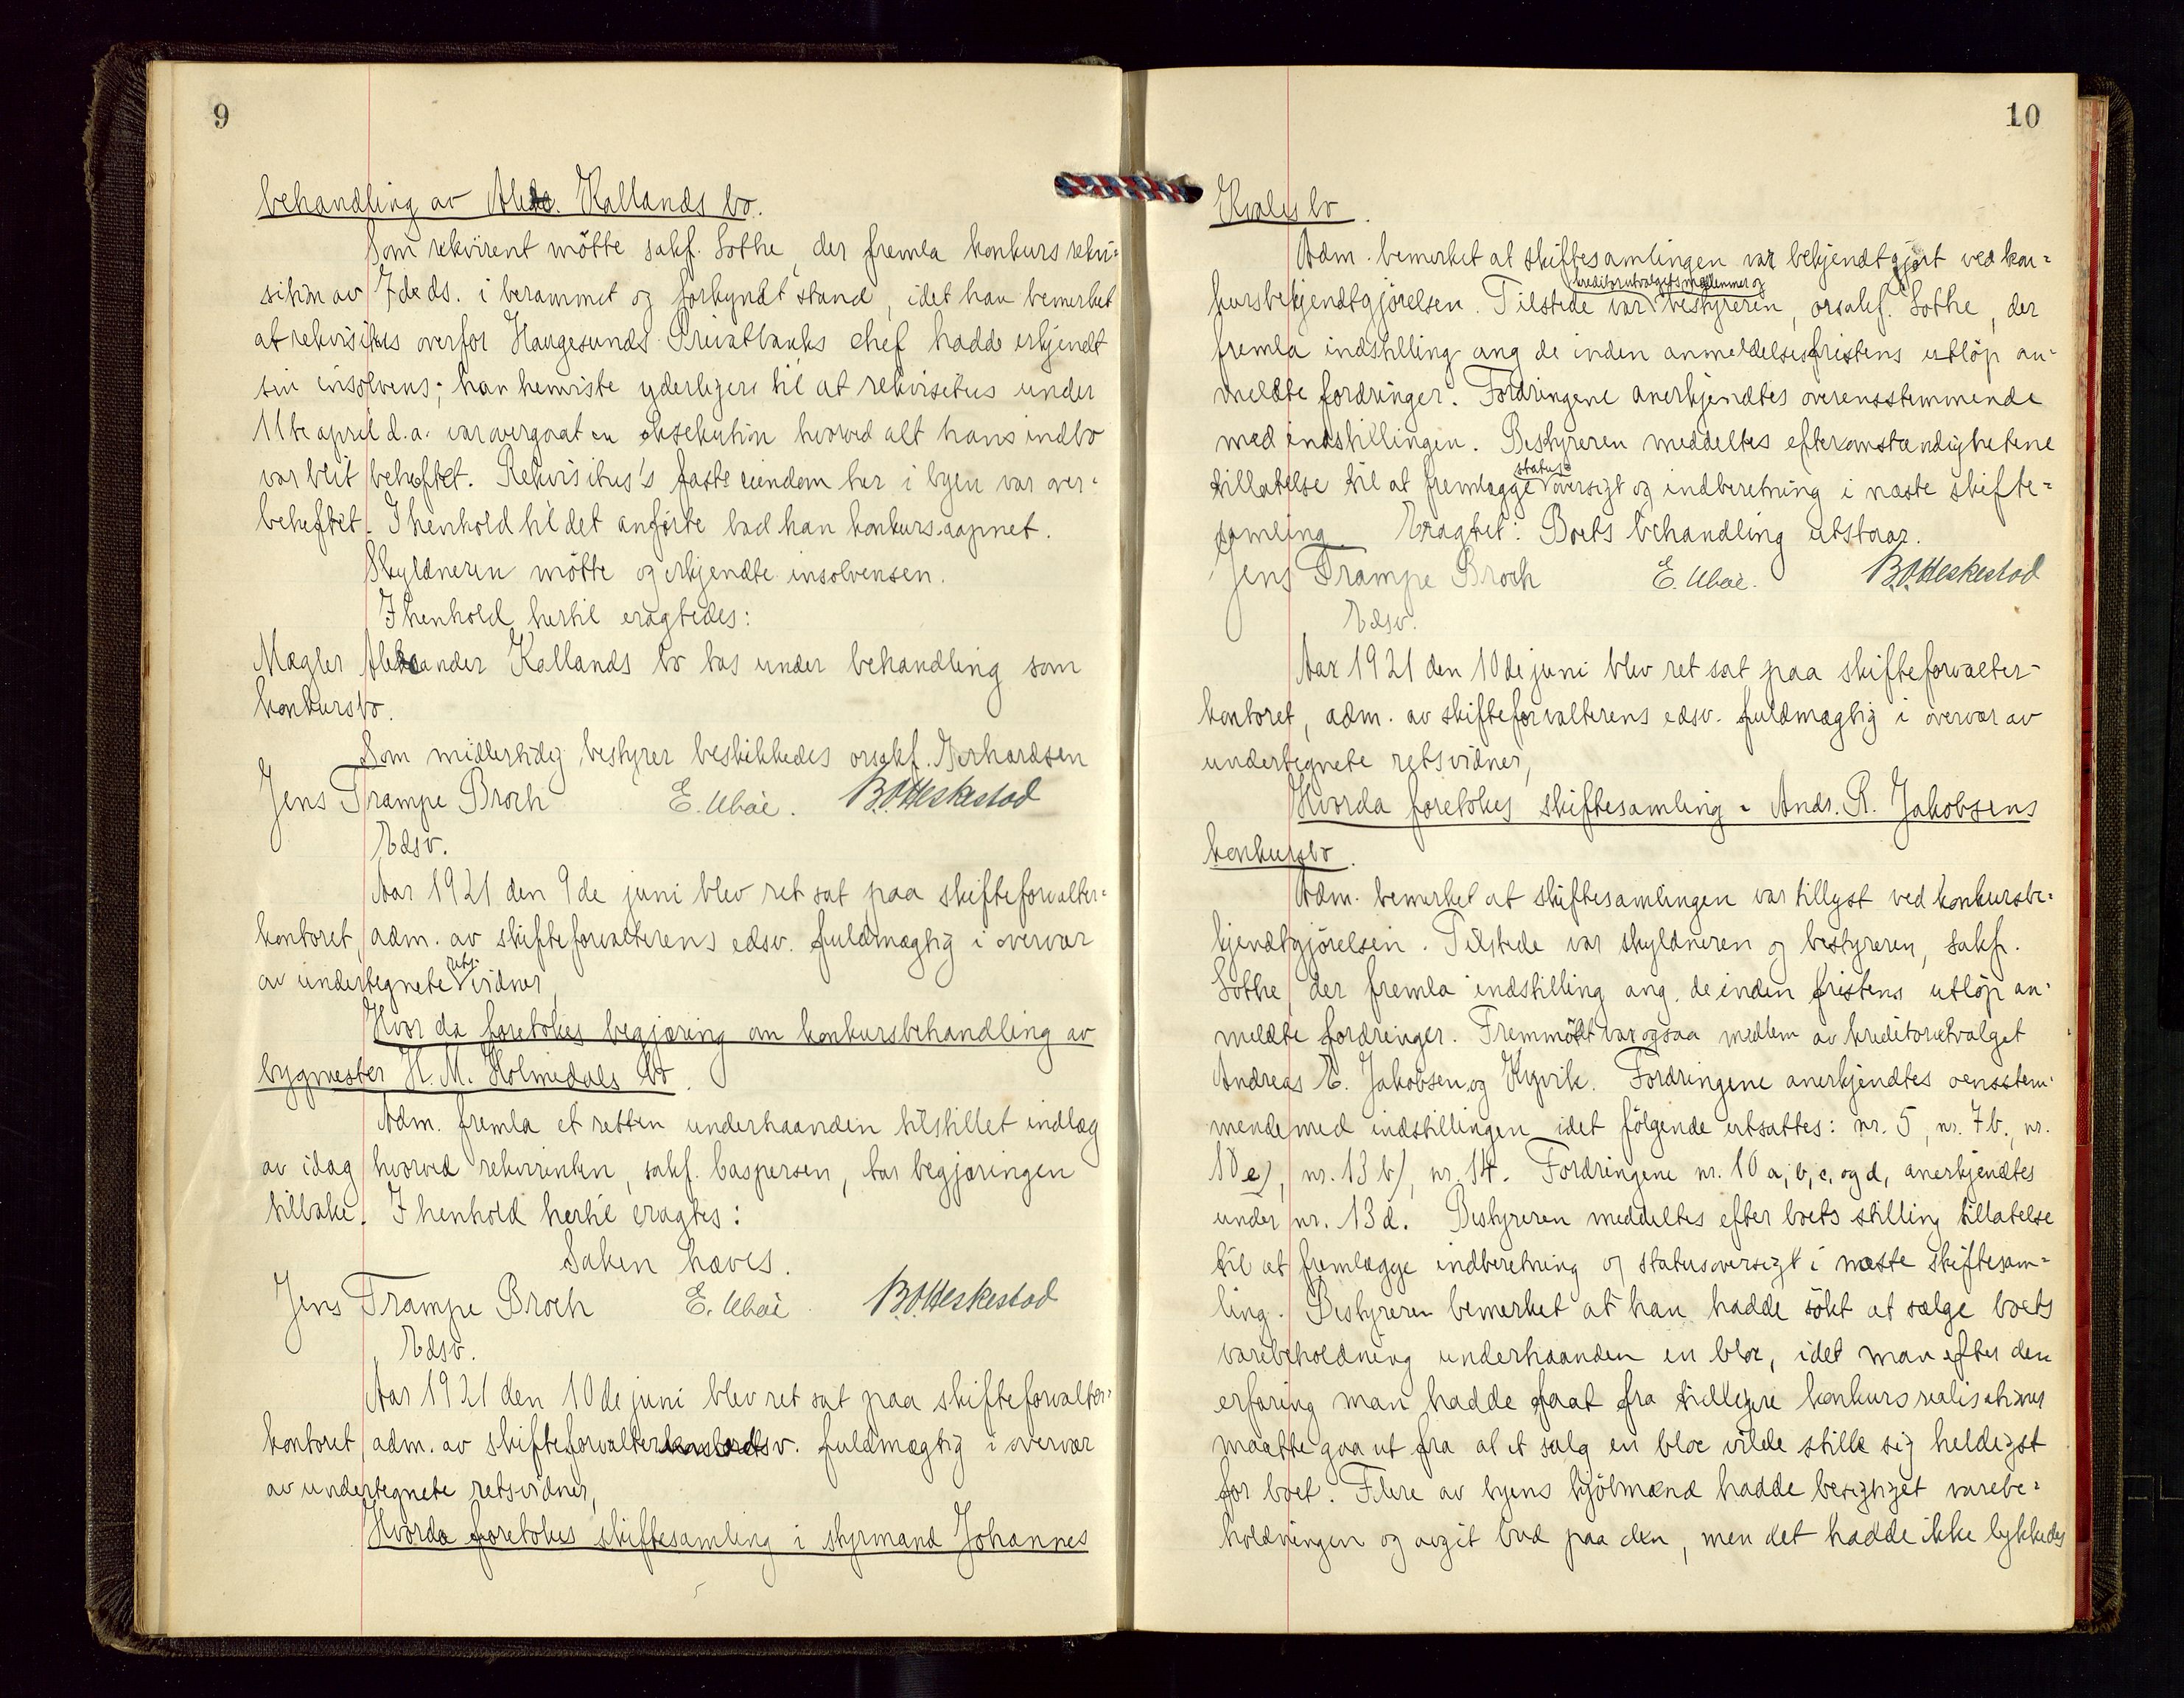 9
behandling av Aleks. Kallands bo.
Som rekvirent mötte sakf. Lothe, der fremla konkursrekvi-
sition av 7de ds. i berammet og forkyndt stand, idet han bemerket
at rekvisitus overfor Haugesunds Privatbanks chef hadde erkjendt
sin insolvens; han henviste yderligere til at rekvisitus under
11te april d.a. var overgaat en eksekution hvorved alt hans indbo
var blit beheftet. Rekvisitus's faste eiendom her i byen var over-
beheftet. I henhold til det anførte bad han konkurs aapnet.
Skyldneren mötte og erkjendte insolvensen.
I henhold hertil eragtedes:
Mægler Aleksander Kallands bo tas under behandling som
konkursbo.
Som midlertidig bestyrer beskikkedes orsakf. Gerhardsen
Jens Trampe Broch E. Ubøe. B.O. Heskestad
Edsv.
Aar 1921 den 9de juni blev ret sat paa skifteforvalter-
kontoret, adm. av skifteforvalterens edsv. fuldmægtig i overvær
av undertegnete rets-vidner,
Hvor da foretokes begjæring om konkursbehandling av
bygmester H. M. Holmedals bo.
Adm. fremla et retten underhaanden tilstillet indlæg
av idag hvorved rekvirenten, sakf. Caspersen, tar begjæringen
tilbake. I henhold hertil eragtes:
Saken hæves.
Jens Trampe Broch E. Ubøe B.O. Heskestad
Edsv.
Aar 1921 den 10de juni blev ret sat paa skifteforvalter-
kontoret, adm. av skifteforvalterens edsv. fuldmægtig i overvær
av undertegnete retsvidner,
Hvorda foretokes skiftesamling i styrmand Johannes
10
Kvales bo.
Adm. bemerket at skiftesamlingen var bekjendtgjort ved kon-
kursbekjendtgjörelsen. Tilstede var kreditorutvalgets medlemmer og bestyreren, orsakf. Lothe, der
fremla indstilling ang de inden anmeldelsesfristens utlöp an-
meldte fordringer. Fordringene anerkjendtes overensstemmende
med indstillingen. Bestyreren meddeltes efter omstændighetene
tillatelse til at fremlægge status-oversigt og indberetning i næste skifte-
samling. Eragtet: Boets behandling utstaar.
Jens Trampe Broch E. Ubøe. B.O. Heskestad
Edsv.
Aar 1921 den 10de juni blev ret sat paa skifteforvalter-
kontoret, adm. av skifteforvalterens edsv. fuldmægtig i overvær av
undertegnete retsvidner,
Hvorda foretokes skiftesamling i Andr. R. Jakobsens
konkursbo.
Adm. bemerket at skiftesamlingen var tillyst ved konkursbe-
kjendtgjörelsen. Tilstede var skyldneren og bestyreren, sakf.
Lothe der fremla indstilling ang. de inden fristens utlöp an-
meldte fordringer. Fremmött var ogsaa medlem av kreditorutvalget
Andreas E. Jakobsen og Kyvik. Fordringene anerkjendtes oensstem-
mende med indstillingen idet fölgende utsattes: nr. 5, nr. 7b., nr.
10 e), nr. 13 b), nr. 14. Fordringene nr. 10 a, b, c, og d, anerkjendtes
under nr. 13 d. Bestyreren meddeltes efter boets stilling tillatelse
til at fremlægge indberetning og statusoversigt i næste skiftesam-
ling. Bestyreren bemerket at han hadde sökt at sælge boets
varebeholdning underhaanden en bloc, idet man efter den
erfaring man hadde faat fra tidligere konkursrealisationer
maatte gaa ut fra at et salg en bloc vilde stille sig heldigst
for boet. Flere av byens kjöbmænd hadde besigtiget varebe-
holdningen og avgit bud paa den, men det hadde ikke lykkedes